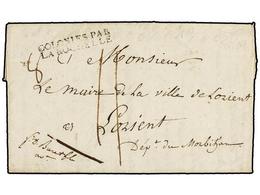 COLONIES PAR
LA ROCHELLE
A Monsieur
Le maire de la ville de Lorient
à
Lorient
Dép.t du Morbihan